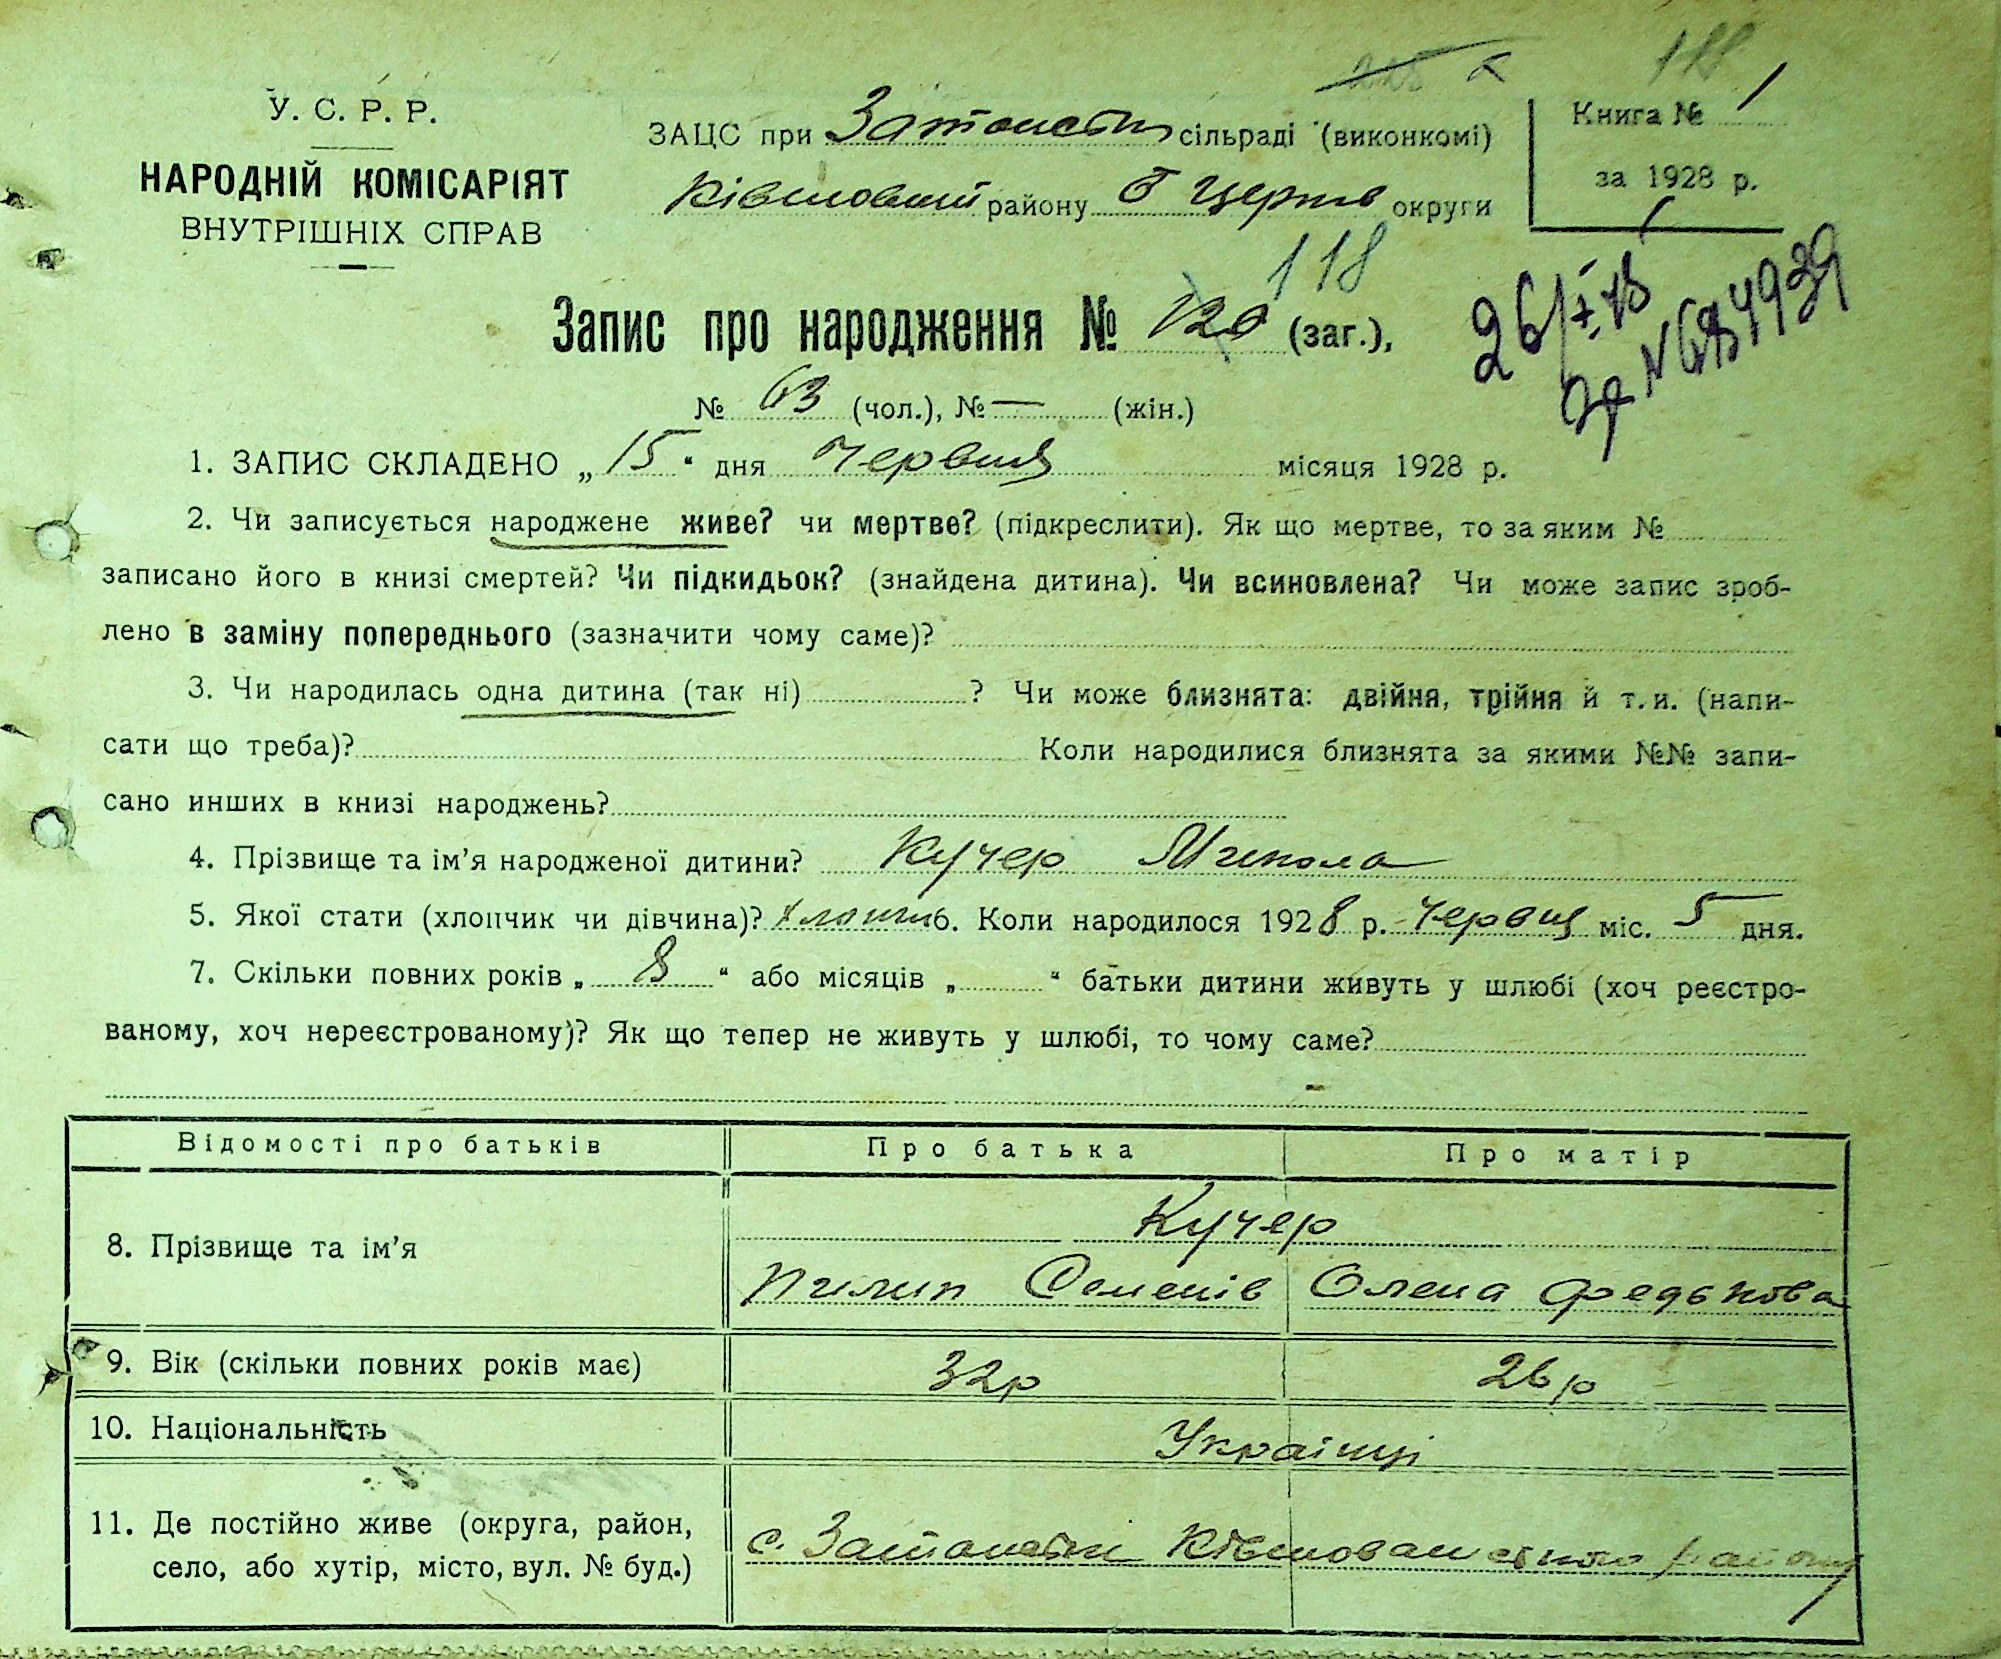 118
У. С. Р. Р.
НАРОДНІЙ КОМІСАРІЯТ
ВНУТРІШНІХ СПРАВ
ЗАЦС при сільраді (виконкомі)
району Б Церків округи
Книга № 1
за 1928 р.
118
Запис про народження № 120 (заг.),
№ 63 (чол.), № — (жін.)
1. ЗАПИС СКЛАДЕНО „ 15 “ дня Червня місяця 1928 р.
2. Чи записується народжене живе? чи мертве? (підкреслити). Як що мертве, то за яким №
записано його в книзі смертей? Чи підкидьок? (знайдена дитина). Чи всиновлена? Чи може запис зроб-
лено в заміну попереднього (зазначити чому саме)?
3. Чи народилась одна дитина (так ні) ? Чи може близнята: двійня, трійня й т. и. (напи-
сати що треба)? Коли народилися близнята за якими №№ запи-
сано инших в книзі народжень?
4. Прізвище та ім’я народженої дитини? Кучер Микола
5. Якої стати (хлопчик чи дівчина)? 6. Коли народилося 1928 р. Червця міс. 5 дня.
7. Скільки повних років „ 8 “ або місяців „ “ батьки дитини живуть у шлюбі (хоч реєстро-
ваному, хоч нереєстрованому)? Як що тепер не живуть у шлюбі, то чому саме?
Відомості про батьків Про батька Про матір
8. Прізвище та ім’я Кучер
Пилип Семенів Олена Федькова
9. Вік (скільки повних років має) 32р 26р
10. Національність Українці
11. Де постійно живе (округа, район,
село, або хутір, місто, вул. № буд.) с. району